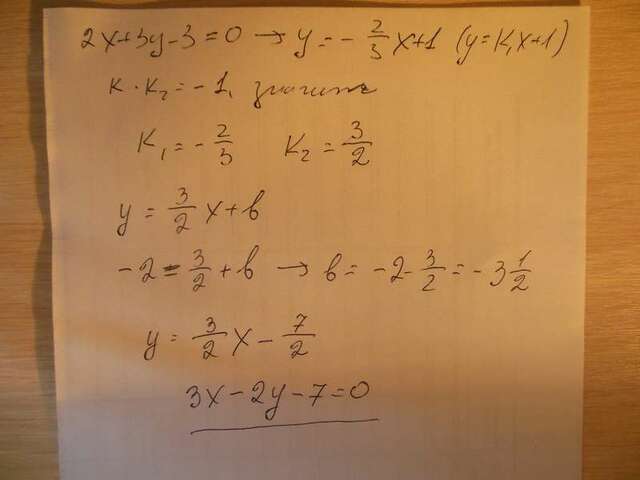 2x+3y-3=0 → y=-2/3 x+1 (y=K₁x+1)
K·K₂=-1, значит
K₁=-2/3 K₂=3/2
y=3/2 x+b
-2=3/2+b → b=-2-3/2=-3 1/2
y=3/2 x-7/2
3x-2y-7=0